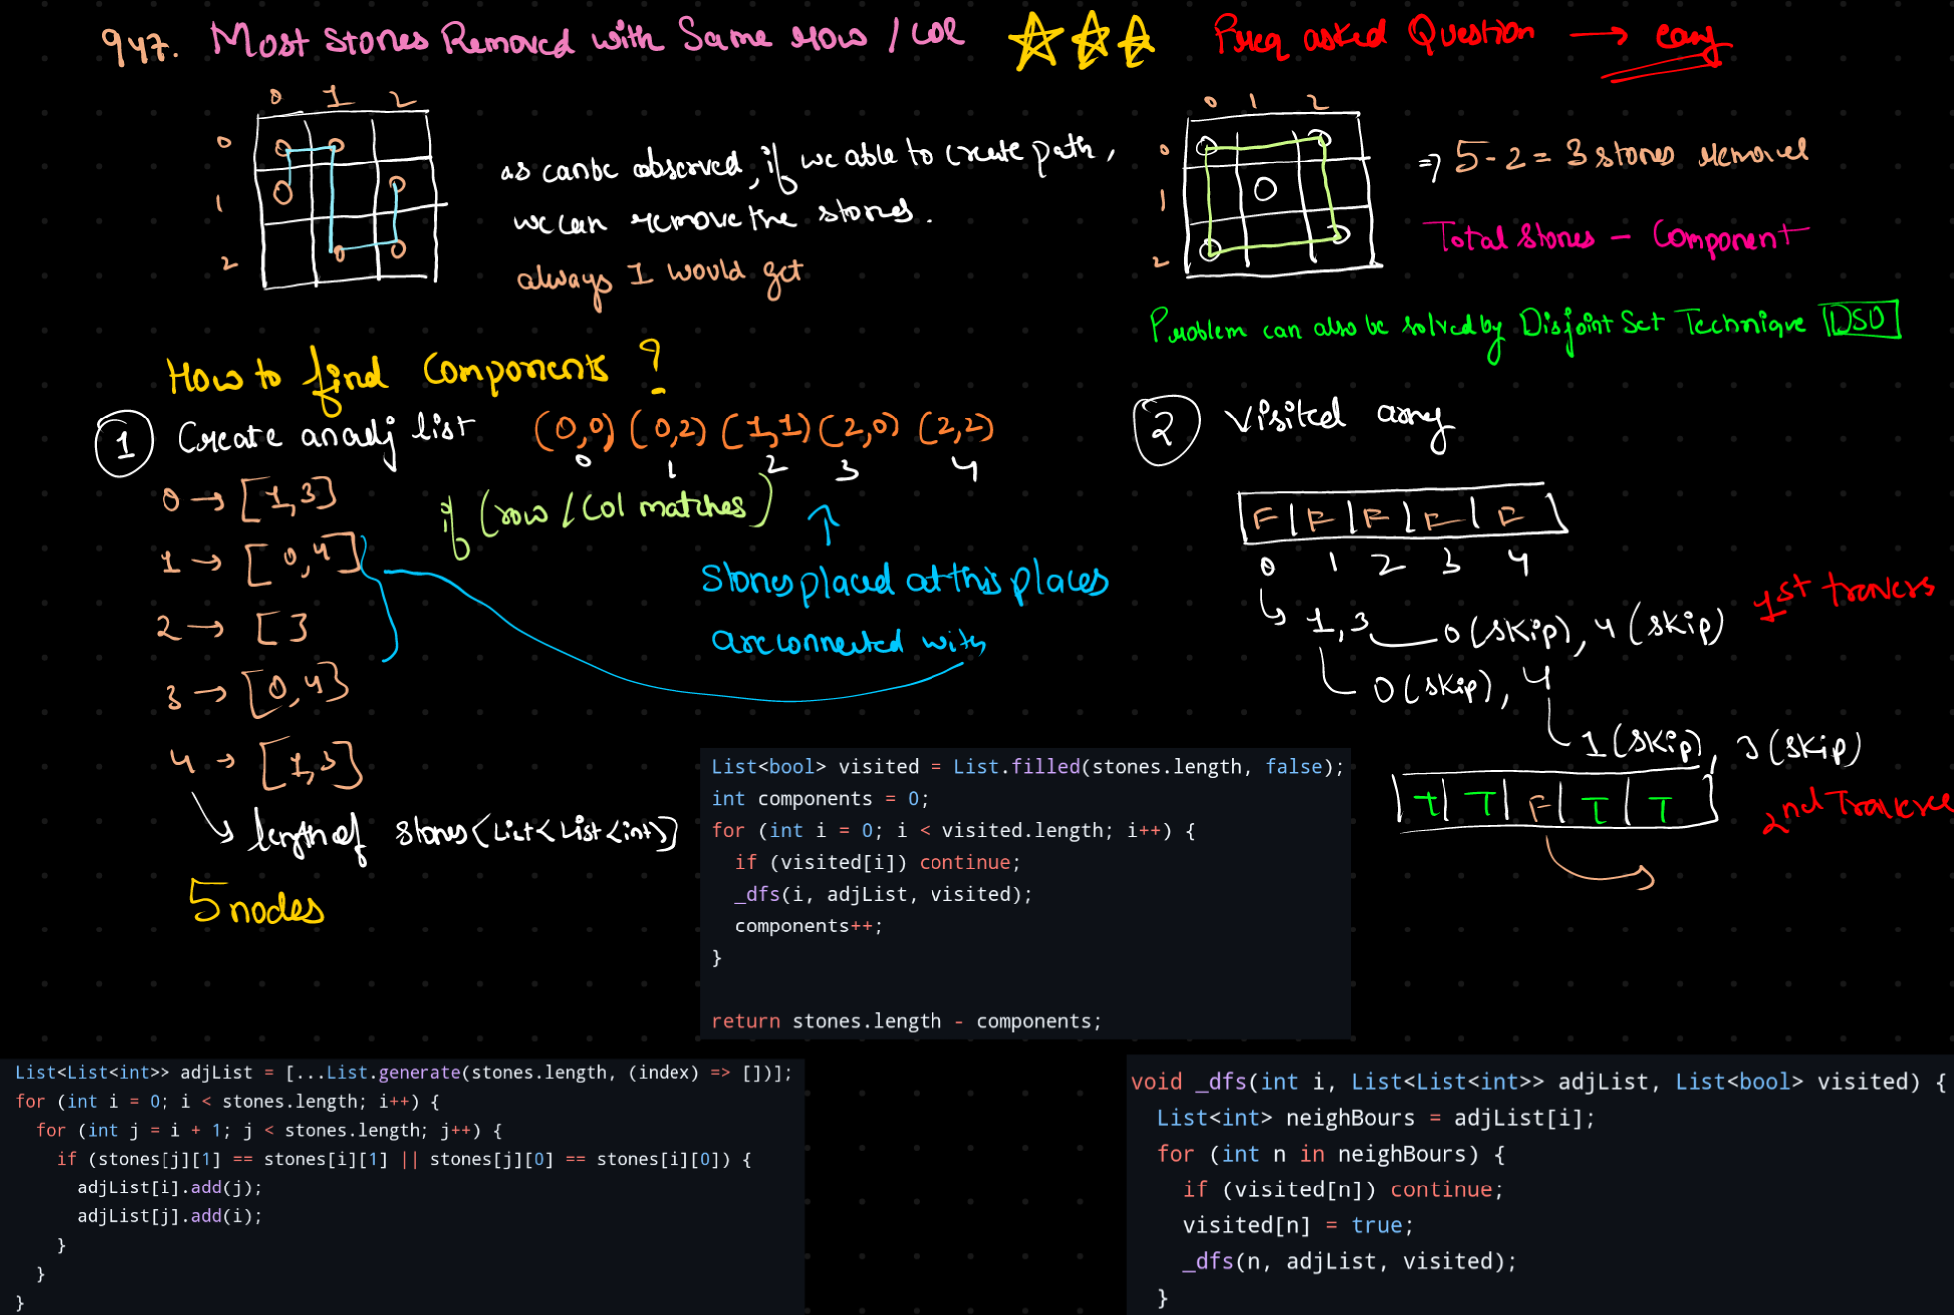 947. Most Stones Removed with Same row / COL
Freq asked Question → easy
0 1 2
0
1
2
as can be observed, if we able to create path,
we can remove the stones.
always 1 would get
0 1 2
0
1
2
⇒ 5-2 = 3 stones removed
Total Stones - Component
Problem can also be solved by Disjoint Set Technique DSU
How to find Components ?
1 Create an adj list (0,0) (0,2) (1,1) (2,0) (2,2)
0 1 2 3 4
0 → [1,3]
1 → [0,4]
2 → []
3 → [0,4]
4 → [1,3]
if (row / Col matches)
Stones placed at this places
are connected with
length of stones (List<List<int>>)
5 nodes
2 Visited array
F | F | F | F | F
0 1 2 3 4
1,3 0 (skip), 4 (skip)
1st travers
0 (skip), 4
1 (skip), 3 (skip)
T | T | F | T | T
2nd Traverse
List<bool> visited = List.filled(stones.length, false);
int components = 0;
for (int i = 0; i < visited.length; i++) {
if (visited[i]) continue;
_dfs(i, adjList, visited);
components++;
}
return stones.length - components;
List<List<int>> adjList = [...List.generate(stones.length, (index) => [])];
for (int i = 0; i < stones.length; i++) {
for (int j = i + 1; j < stones.length; j++) {
if (stones[j][1] == stones[i][1] || stones[j][0] == stones[i][0]) {
adjList[i].add(j);
adjList[j].add(i);
}
}
}
void _dfs(int i, List<List<int>> adjList, List<bool> visited) {
List<int> neighBours = adjList[i];
for (int n in neighBours) {
if (visited[n]) continue;
visited[n] = true;
_dfs(n, adjList, visited);
}